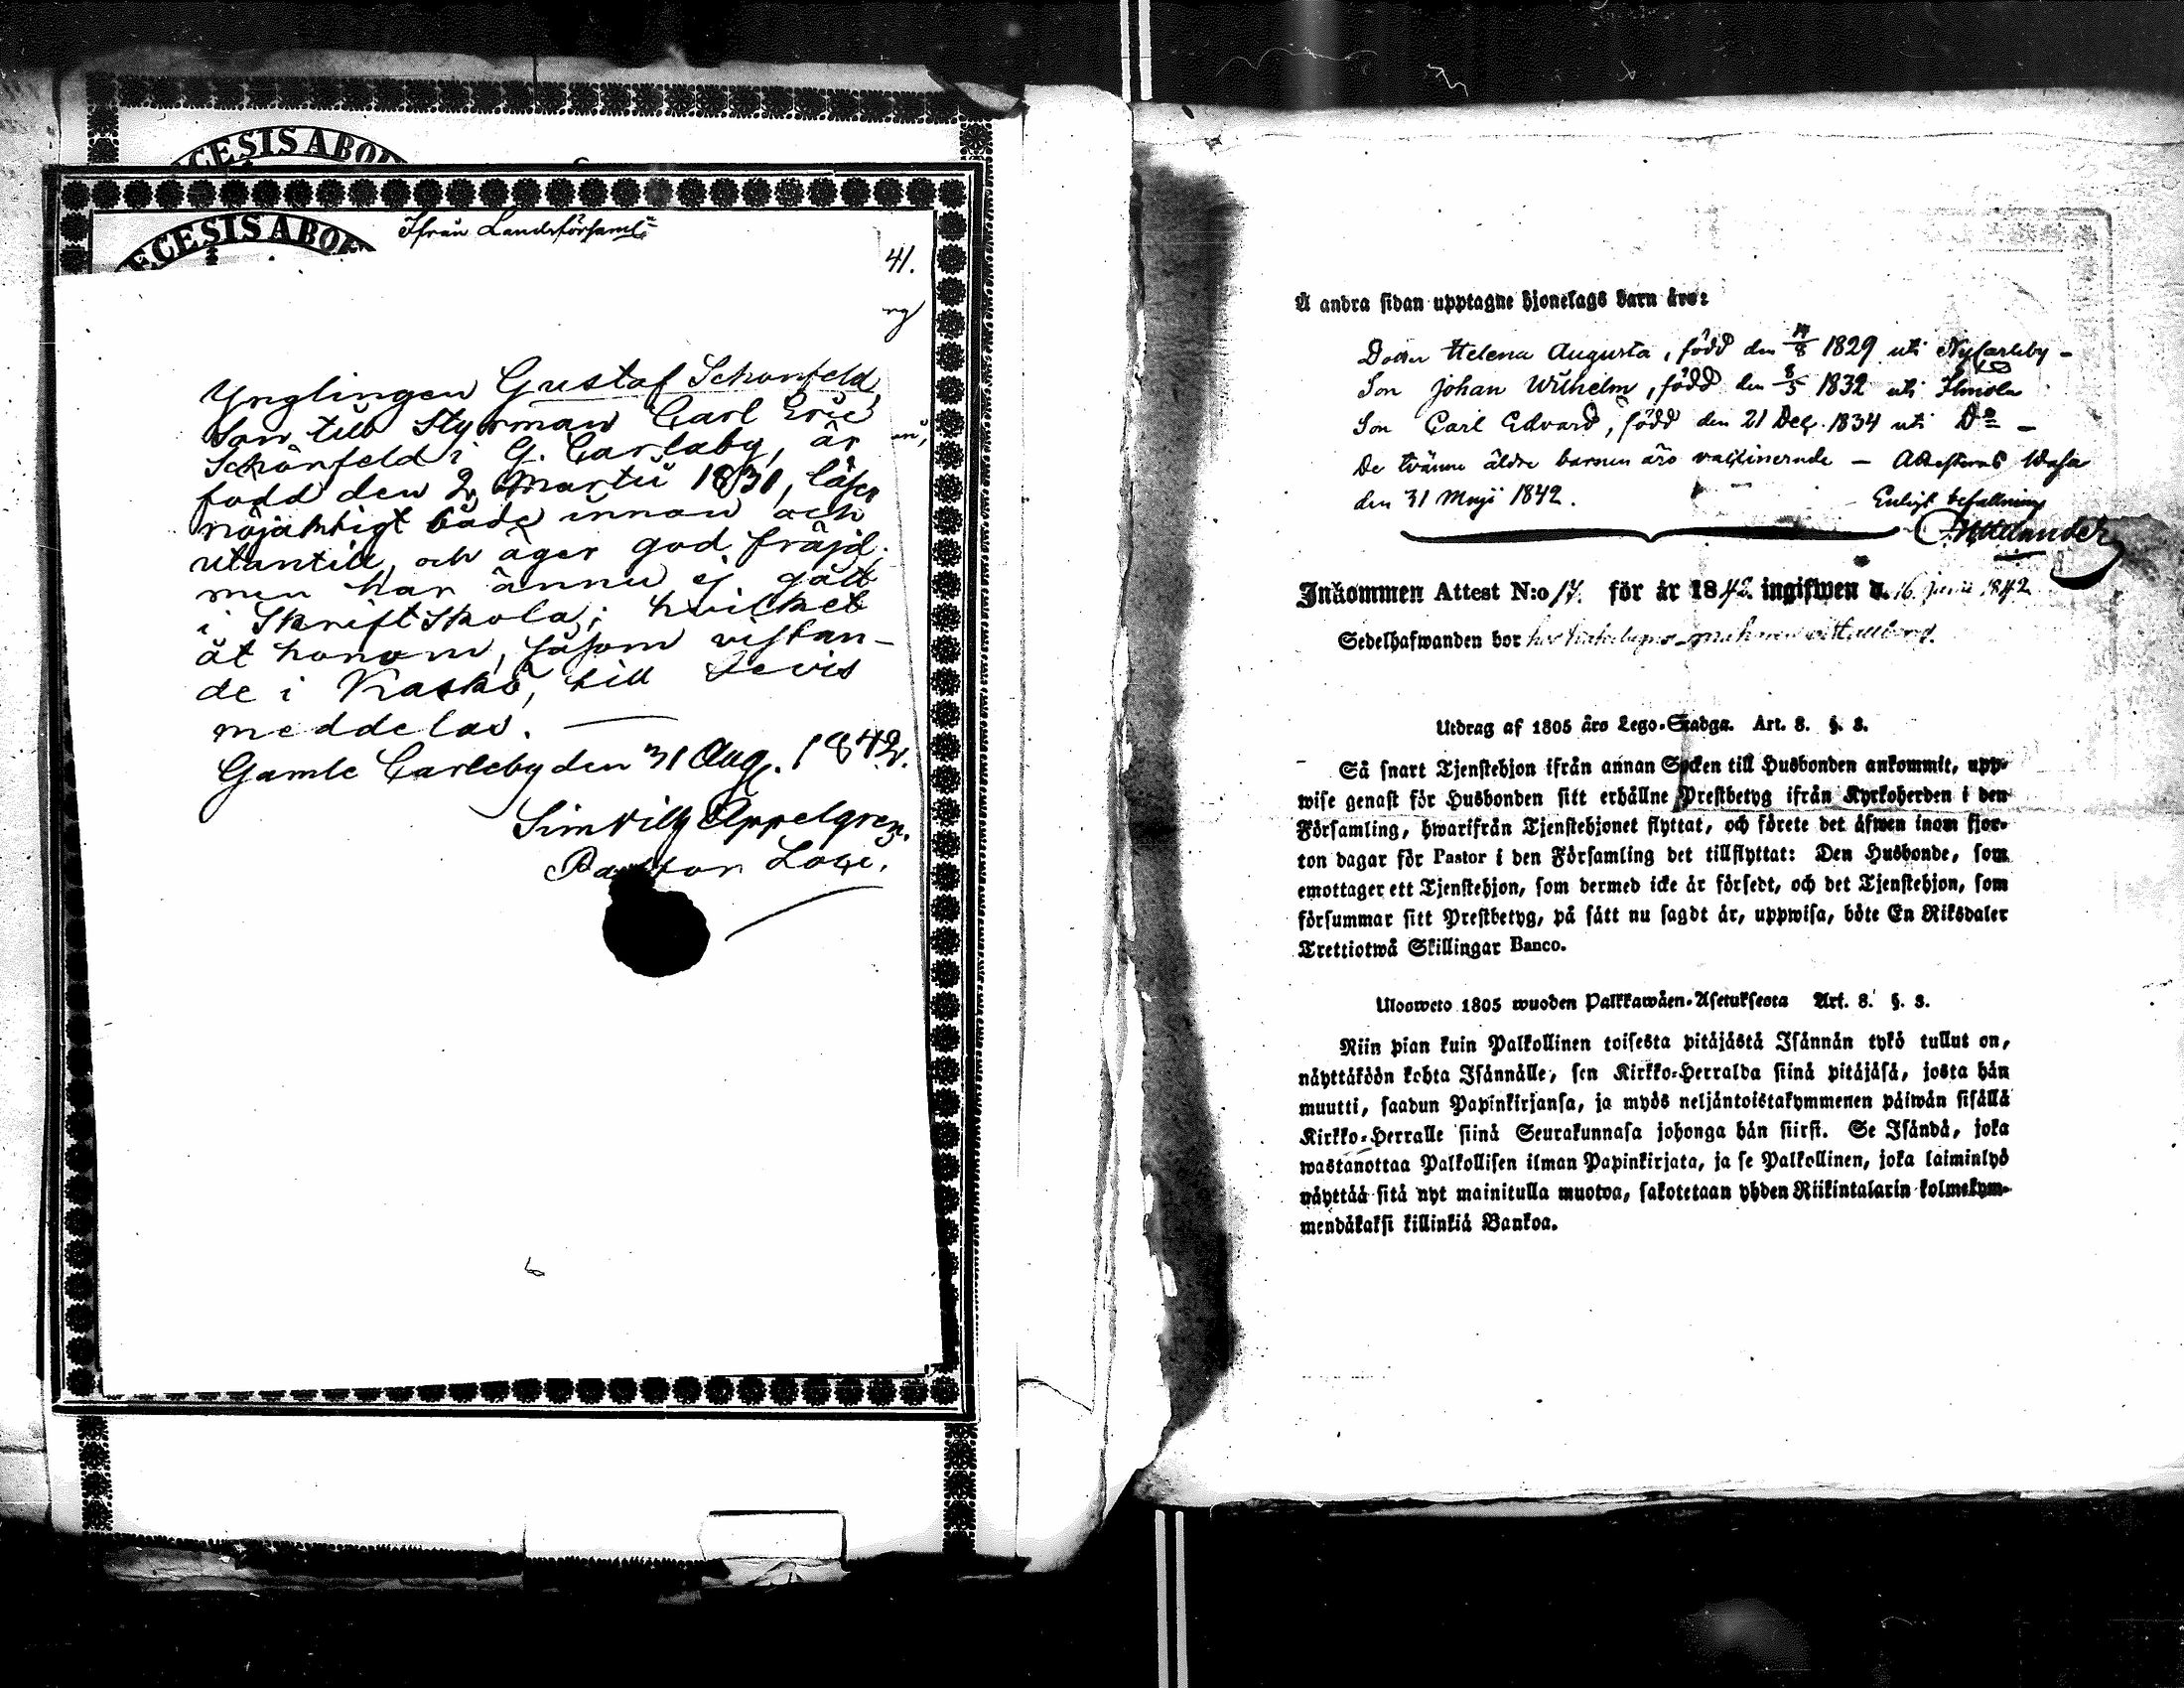 ECESIS ABOE
ECESIS ABOE
Ifrån Landsförsaml:
41.
ng
Ynglingen Gustaf Schonfeld,
Son till Styrman Carl Eric
Schönfeld i G. Carlaby, är
född den 2 Martii 1830, läser
nöjaktigt både innan och
utantill och äger god fräjd;
men har ännu ej gått
i Skriftskola; hvilket
åt honom, såsom vistan-
de i Kaskö, till bevis
meddelas.
Gamle Carleby den 31 Aug. 1842.
Sim Wilh Appelgren.
Pastor Loci.
Å andra sidan upptagne hjonelags barn äro:
Dotter Helena Augusta, född den 14/8 1829 uti NyCarleby -
Son Johan Wilhelm, född den 8/5 1832 uti Ilmola
Son Carl Edvard, född den 21 Dec. 1834 uti Do -
De tvänne äldre barnen äro vaccinerade - Attesteras Wasa
den 31 Maji 1842. Enligt befallning
Inkommen Attest N:o 17. för år 1842 ingifwen d. 16 Junii 1842
Sedelhafwanden bor hos
Utdrag af 1805 års Lego-Stadga. Art. 8. §. 3.
Så snart Tjenstehjon ifrån annan Socken till Husbonden ankommit, upp-
wise genast för Husbonden sitt erhållne Prestbetyg ifrån Kyrkoherden i den
Församling, hwarifrån Tjenstehjonet flyttat, och förete det äfwen inom fjor-
ton dagar för Pastor i den Församling det tillflyttat: Den Husbonde, som
emottager ett Tjenstehjon, som dermed icke är försedt, och det Tjenstehjon, som
försummar sitt Prestbetyg, på sätt nu sagdt är, uppwisa, böte En Riksdaler
Trettiotwå Skillingar Banco.
Ulosweto 1805 wuoden Palkkawäen-Asetuksesta Art. 8. §. 3.
Niin pian kuin Palkollinen toisesta pitäjästä Isännän tykö tullut on,
näyttäköön kohta Isännälle, sen Kirkko-Herralda siinä pitäjäsä, josta hän
muutti, saadun Papinkirjansa, ja myös neljäntoistakymmenen päiwän sisällä
Kirkko-Herralle siinä Seurakunnasa johonga hän siirsi. Se Isändä, joka
wastanottaa Palkollisen ilman Papinkirjata, ja se Palkollinen, joka laiminlyö
näyttää sitä nyt mainitulla muotoa, sakotetaan yhden Riikintalarin kolmekym-
mendäkaksi killinkiä Bankoa.